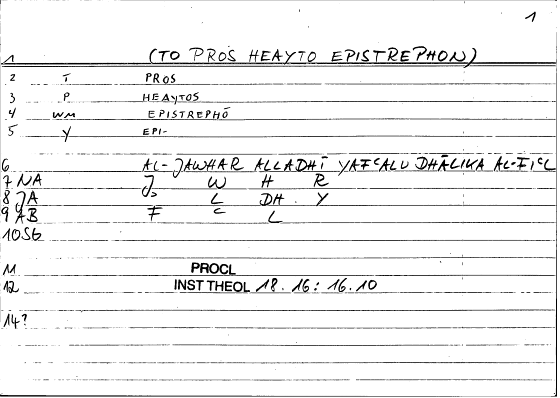 1
1 (TO PROS HEAYTO EPISTREPHON)
2 T PROS
3 P HEAYTOS
4 WM EPISTREPHŌ
5 Y EPI-
6 AL-JAWHAR ALLADHĪ YAFᶜALU DHĀLIKA AL-FIᶜL
7 NA J W H R
8 JA L DH Y
9 AB F ᶜ L
10 SG
11 PROCL
12 INST THEOL 18. 16: 16.10
14?